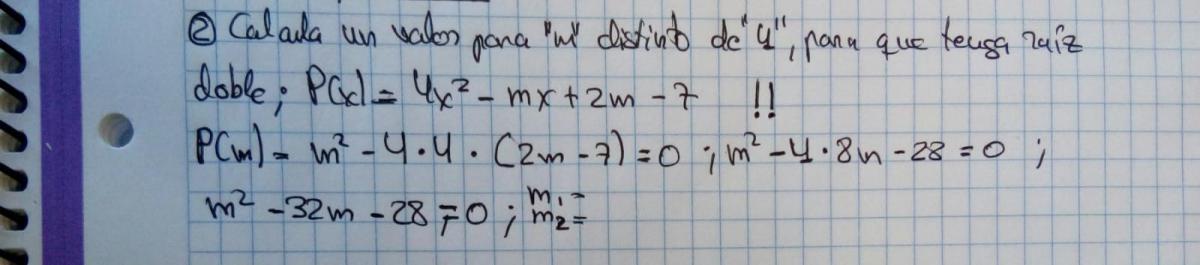 ② Calcula un valor para "m" distinto de "4", para que tenga raíz
doble; P(x) = 4x² - mx + 2m - 7 !!
P(m) = m² - 4 · 4 · (2m - 7) = 0 ; m² - 4 · 8m - 28 = 0 ;
m² - 32m - 28 = 0 ; m₁ =
m₂ =